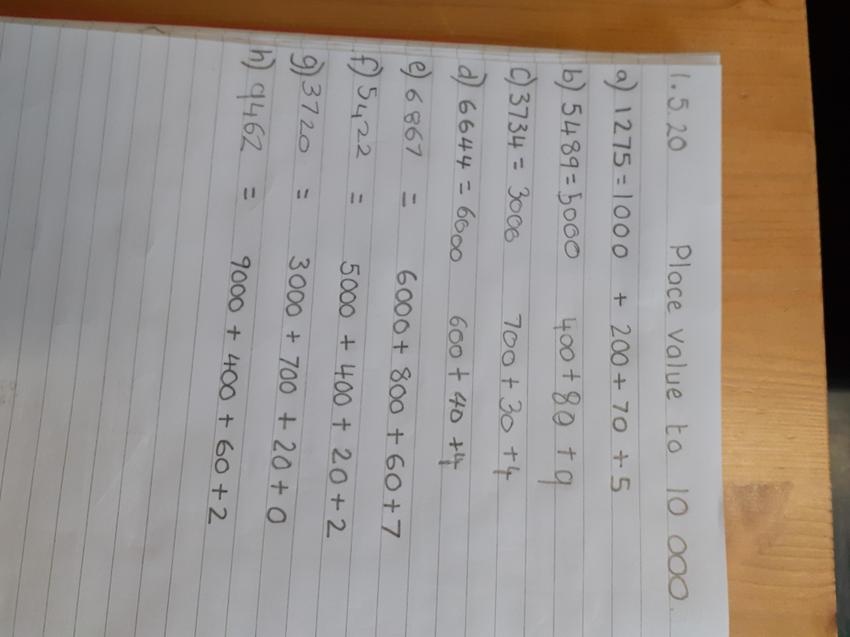 1.5.20 Place value to 10 000.
a) 1275 = 1000 + 200 + 70 + 5
b) 5489 = 5000 400 + 80 + 9
c) 3734 = 3000 700 + 30 + 4
d) 6644 = 6000 600 + 40 + 4
e) 6867 = 6000 + 800 + 60 + 7
f) 5422 = 5000 + 400 + 20 + 2
g) 3720 = 3000 + 700 + 20 + 0
h) 9462 = 9000 + 400 + 60 + 2